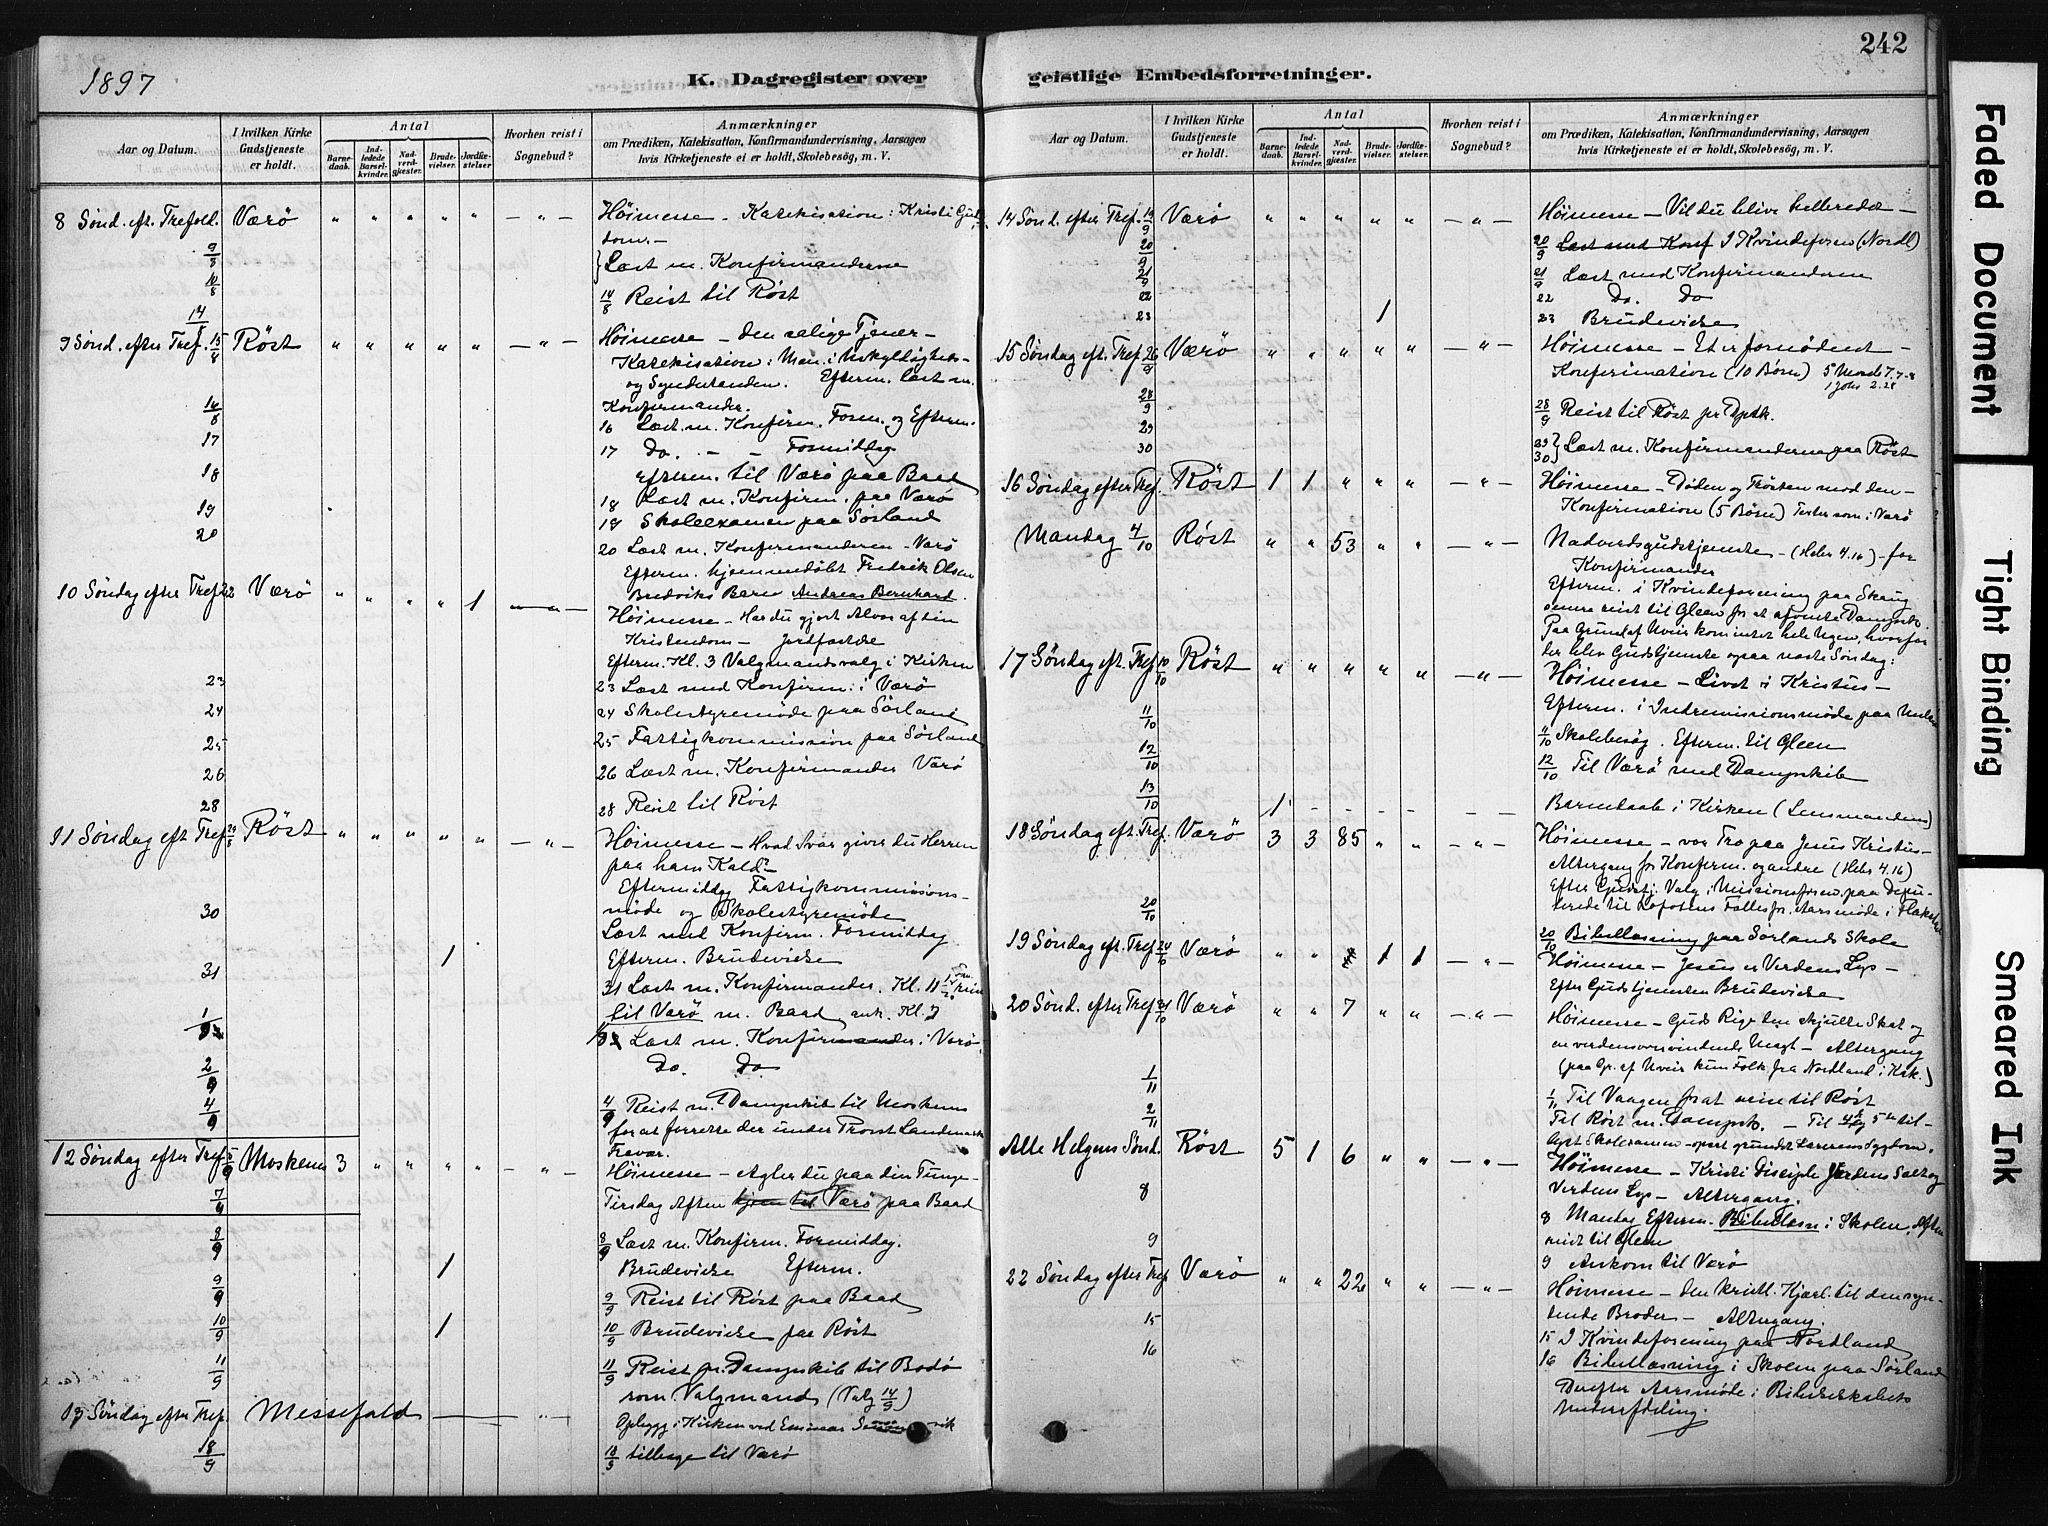 242
1897
K. Dagregister over geistlige Embedsforretninger.
Aar og Datum.
I hvilken Kirke Gudstjeneste er holdt.
Antal
Barnedaab.
Indledede Barselkvinder.
Nadverdgjæster.
Brudevielser.
Jordfæstelser.
Hvorhen reist i Sognebud?
Anmærkninger
om Prædiken, Katekisation, Konfirmandundervisning, Aarsagen
hvis Kirketjeneste ei er holdt, Skolebesög, m. V.
8 Sönd. eft. Trefold. Værö " " " " " — " — Höimesse – Katekisation: Kristi Gud
dom. –
9/8 Læst m. Konfirmanderne
14/8 Reist til Röst
9 Sönd. efter Tref. 15/8 Röst " " " " " — " — Höimesse – den salige Tjener –
Katekisation: Men. i Uskyldigheds-
og Syndstanden. Efterm. læst m.
Konfirmander.
16/8 16 Læst m. Konfirm. Form. og Efterm.
17 17 Do. – – Formiddag
Efterm. til Værö paa Baad
18 18 Læst m. Konfirm. paa Værö
19 Skoleexamen paa Sörland
20 20 Læst m. Konfirmanderne – Værö
Efterm. hjemmedöbt Fredrik Olsen
Bredviks Barn Andreas Bernhard.
10 Söndag efter Tref 22 Værö " " " " 1 — " — Höimesse – Har du gjort Alvor af din
Kristendom – Jordfæstelse
Efterm. Kl. 3 Valgmandsvalg i Kirken
23 23 Læst med Konfirm: i Værö
24 24 Skolestyremöde paa Sörland
25 25 Fattigkommission paa Sörland
26 26 Læst m. Konfirmander Værö
28 28 Reist til Röst
11 Söndag eft Tref 29/8 Röst " " " " " — " — Höimesse – Hvad Svar giver du Herren
paa hans Kald –
Eftermiddag Fattigkommissions-
möde og Skolestyremöde
30 Læst med Konfirm. Formiddag
1 Efterm. Brudevielse
31 31 Læst m. Konfirmander. Kl. 11 1/2
til Værö m. Baad, ank. Kl. 7
1/9 Læst m. Konfirmander i Værö
2/9 Do. Do
4/9 4/9 Reist m. Dampskib til Moskenes
for at forrette der under Provst Landmarks
Fravær.
12 Söndag efter Tref 5/9 Moskenes 3 " " " " — " — Höimesse – Agter du paa din Tunge –
7/9 Tirsdag Aften hjem til Værö paa Baad
8/9 8/9 Læst m. Konfirm. Formiddag.
1 Brudevielse Efterm.
9/9 9/9 Reist til Röst paa Baad
10/9 1 10/9 Brudevielse paa Röst
11/9 11/9 Reist pr. Dampskib til Bodö
som Valgmand (Valg 14/9)
13 Söndag efter Tref. Messefald — " — Opbygg. i Kirken ved Emissær
18/9 18/9 tilbage til Værö
Aar og Datum.
I hvilken Kirke Gudstjeneste er holdt.
Antal
Barnedaab.
Indledede Barselkvinder.
Nadverdgjæster.
Brudevielser.
Jordfæstelser.
Hvorhen reist i Sognebud?
Anmærkninger
om Prædiken, Katekisation, Konfirmandundervisning, Aarsagen
hvis Kirketjeneste ei er holdt, Skolebesög, m. V.
14 Sönd. efter Tref. 19/9 Værö " " " " " — " — Höimesse – Vil du blive helbredet –
20/9 20/9 Læst med Konf I Kvindeforen (Nordl)
21/9 21/9 Læst med Konfirmanderne
22 22 Do. Do
23 1 23 Brudevielse
15 Söndag eft. Tref 26/9 Værö " " " " " — " — Höimesse – Et er fornödent –
Konfirmation (10 Börn) 5 Moseb 7.7-8
1 Joh 2.28
28/9 28/9 Reist til Röst pr Dpsk.
29 30 29 30 Læst m. Konfirmanderne paa Röst
16 Söndag efter Tref. Röst 1 1 " " " — " — Höimesse – Döden og Trösten mod den –
Konfirmation (5 Börn) Texter som i Værö
Mandag 4/10 Röst " " 53 " " — " — Nadverdsgudstjeneste – (Hebr 4.16) – for
Konfirmander
Efterm. i Kvindeforening paa Skaug
senere reist til Gleen for at afvente Dampsk.
Paa Grund af Uveir kom intet hele Ugen, hvorfor
der blev Gudstjeneste ogsaa næste Söndag:
17 Söndag eft. Tref 10/10 Röst " " " " " — " — Höimesse – Livet i Kristus –
Efterm. i Indremissionsmöde paa
11/10 11/10 Skolebesög. Efterm. til Gleen
12/10 12/10 Til Værö med Dampskib
13/10 1 – – – – – Barnedaab i Kirken (Lensmandens)
18 Söndag eft. Tref. Værö 3 3 85 " " — " — Höimesse – vor Tro paa Jesus Kristus –
Altergang for Konfirm. og andre (Hebr 4.16)
Efter Gudstj. Valg i Missionsforen. paa Depu-
terede til Lofotens Fællesfor. Aarsmöde i Flakstad
20/10 20/10 Bibellæsning paa Sörlands Skole
19 Söndag eft. Tref 24/10 Værö " " 1 1 — " — Höimesse – Jesus er Verdens Lys –
Efter Gudstjenesten Brudevielse
20 Sönd. efter Tref 31/10 Værö " " 7 " " — " — Höimesse – Guds Rige den skjulte Skat og
en verdensovervindende Magt – Altergang
(paa Gr. af Uveir kun Folk fra Nordland i Kirk.)
1/11 1/11 Til Vaagen for at reise til Röst
2/11 Til Röst m. Dampsk. – Til 4de og 5te til-
lyst Skolexamen – opsat grundet Lærerens Sygdom.
Alle Helgens Sönd. Röst 5 1 6 " " — " — Höimesse – Kristi Disciple Jordens Salt og
Verdens Lys – Altergang.
8 8 Mandag Efterm. Bibellæsn i Skolen, Aften
reist til Gleen
9 9 Ankom til Værö
22 Söndag efter Tref Værö " " 22 " " — " — Höimesse – den kristl. Kjærl. til den syn-
dende Broder – Altergang.
15 15 I Kvindeforening paa Nordland
16 16 Bibellæsning i Skolen paa Sörland
Derefter Aarsmöde i Bibelselskabets
Underafdeling.
Faded Document
Tight Binding
Smeared Ink